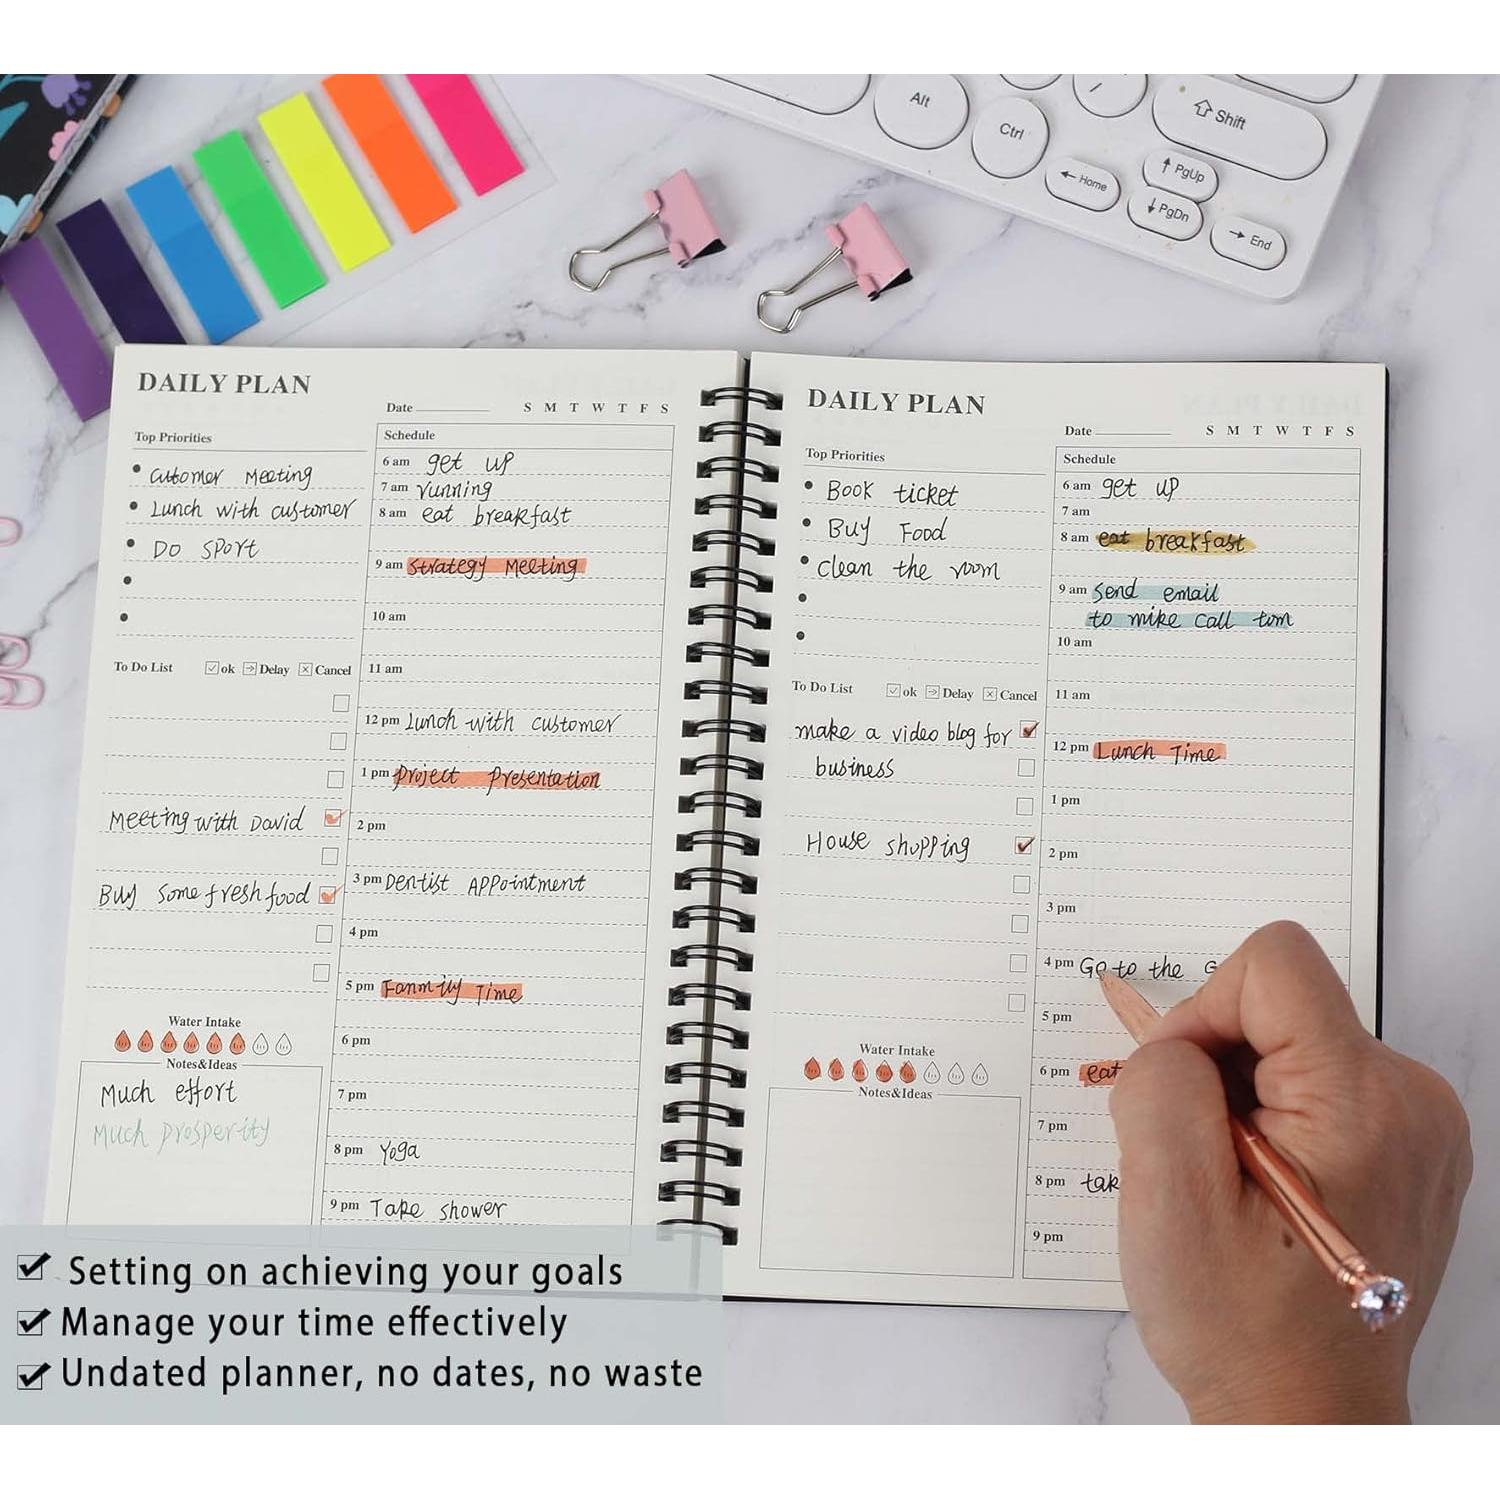 Alt
Ctrl
Shift
Home
PgUp
PgDn
End
DAILY PLAN
Date
S M T W T F S
Top Priorities
Cutomer Meeting
Lunch with customer
Do Sport
To Do List ok Delay Cancel
Meeting with David
Buy some fresh food
Water Intake
Notes&Ideas
Much effort
Much prosperity
Schedule
6 am get up
7 am running
8 am eat breakfast
9 am Strategy Meeting
10 am
11 am
12 pm Lunch with customer
1 pm Project Presentation
2 pm
3 pm Dentist Appointment
4 pm
5 pm Fanmily Time
6 pm
7 pm
8 pm Yoga
9 pm Take shower
DAILY PLAN
Date
S M T W T F S
Top Priorities
Book ticket
Buy Food
clean the room
To Do List ok Delay Cancel
make a video blog for
business
House shopping
Water Intake
Notes&Ideas
Schedule
6 am get up
7 am
8 am eat breakfast
9 am Send email
to mike call tom
10 am
11 am
12 pm Lunch Time
1 pm
2 pm
3 pm
4 pm Go to the G
5 pm
6 pm eat
7 pm
8 pm tak
9 pm
Setting on achieving your goals
Manage your time effectively
Undated planner, no dates, no waste